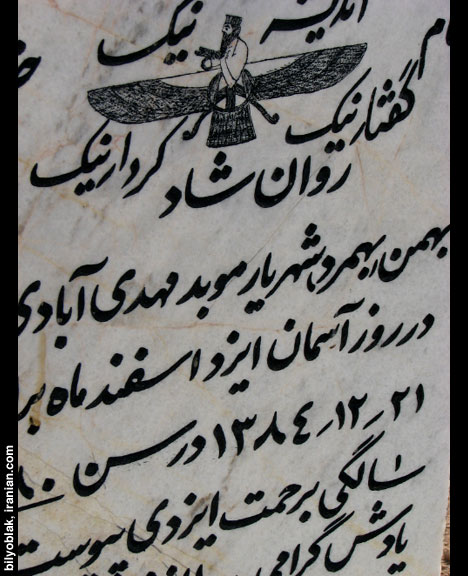 اندیشه نیک
گفتار نیک کردار نیک
روان شاد
بهمن (بهمرد) شهریار موبد مهدی آبادی
در روز آسمان ایزد اسفند ماه
۲۱٫۱۲٫۱۳۸٤ در سن
سالگی برحمت ایزدی پیوست
یادش گرامی
bilyoblak, iranian.com